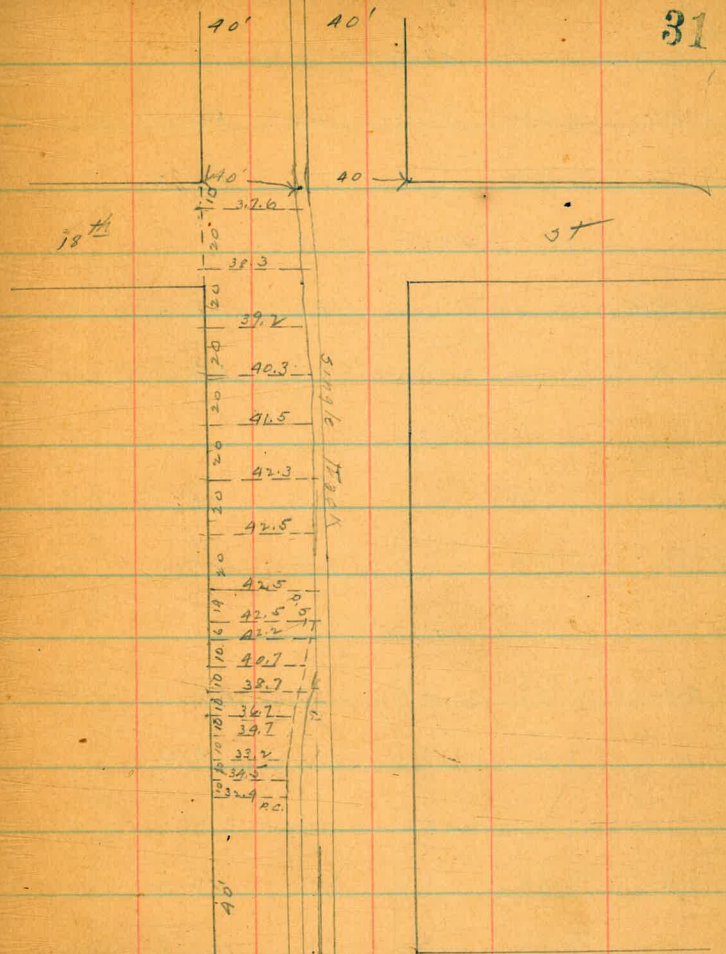 40' 40' 31
40' 40
10 37.6
18th St
20 38.3
20 39.2
20 40.3
20 41.5
20 42.3
20 42.5
20 42.5
14 42.5
6 42.2
10 40.7
10 38.7
10 36.7
10 34.7
10 33.2
10
10 32.4
P.C.
Single Track
40'